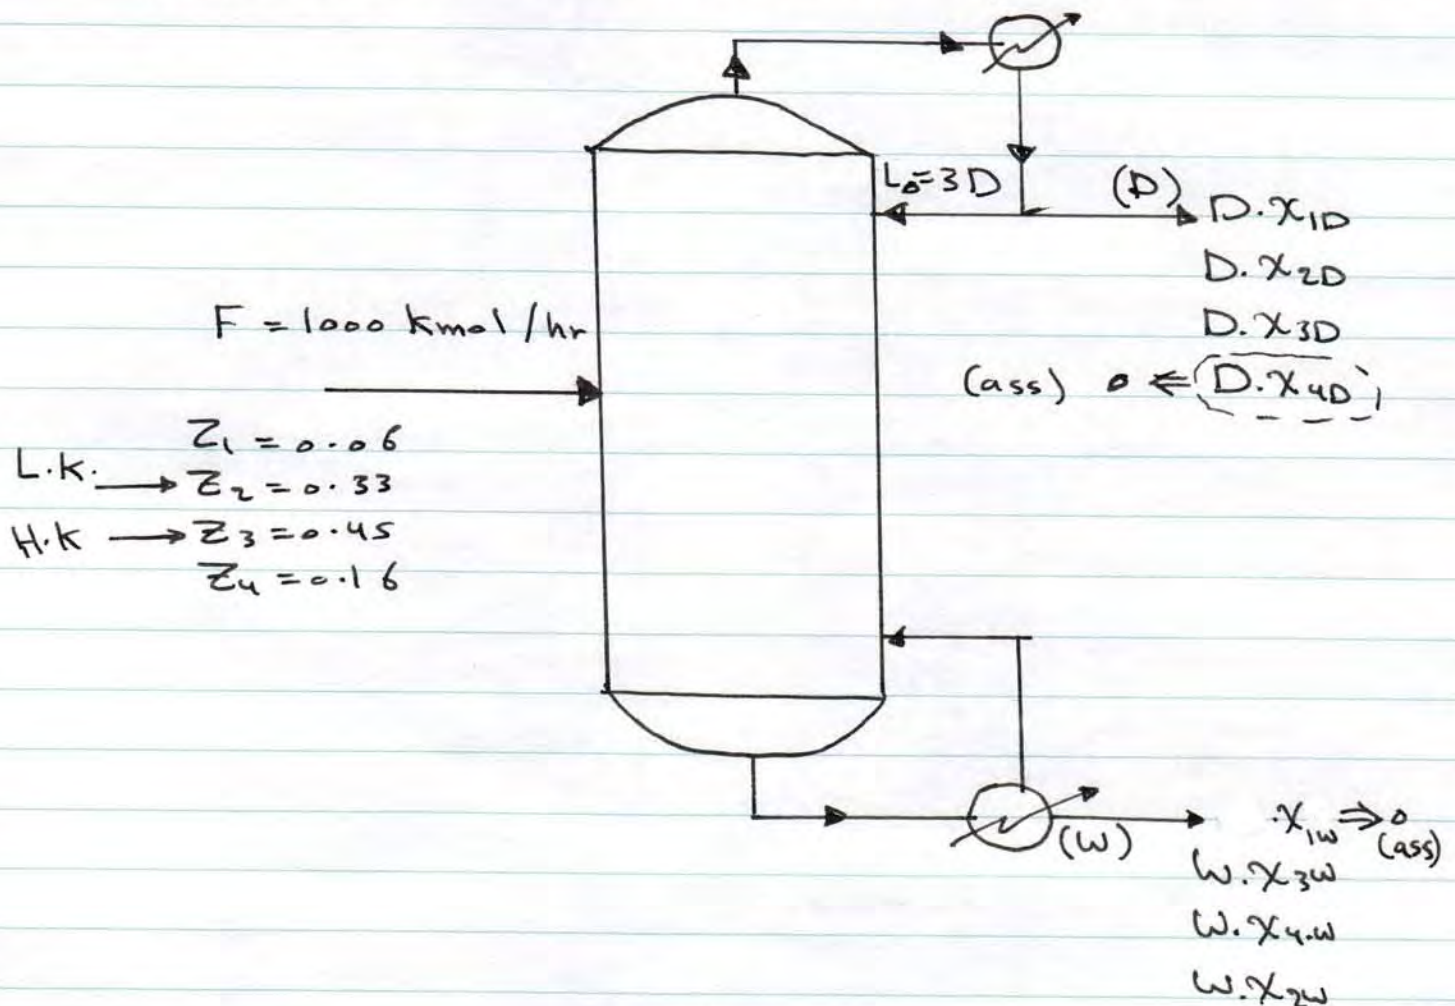 L₀=3D
(D)
D.x₁D
D.x₂D
D.x₃D
(ass) 0 ⇐ D.x₄D
F = 1000 Kmol/hr
Z₁ = 0.06
L.K. → Z₂ = 0.33
H.K → Z₃ = 0.45
Z₄ = 0.16
(W)
.x₁w ⇒ 0
(ass)
W.x₃w
W.x₄.w
W.x₂w